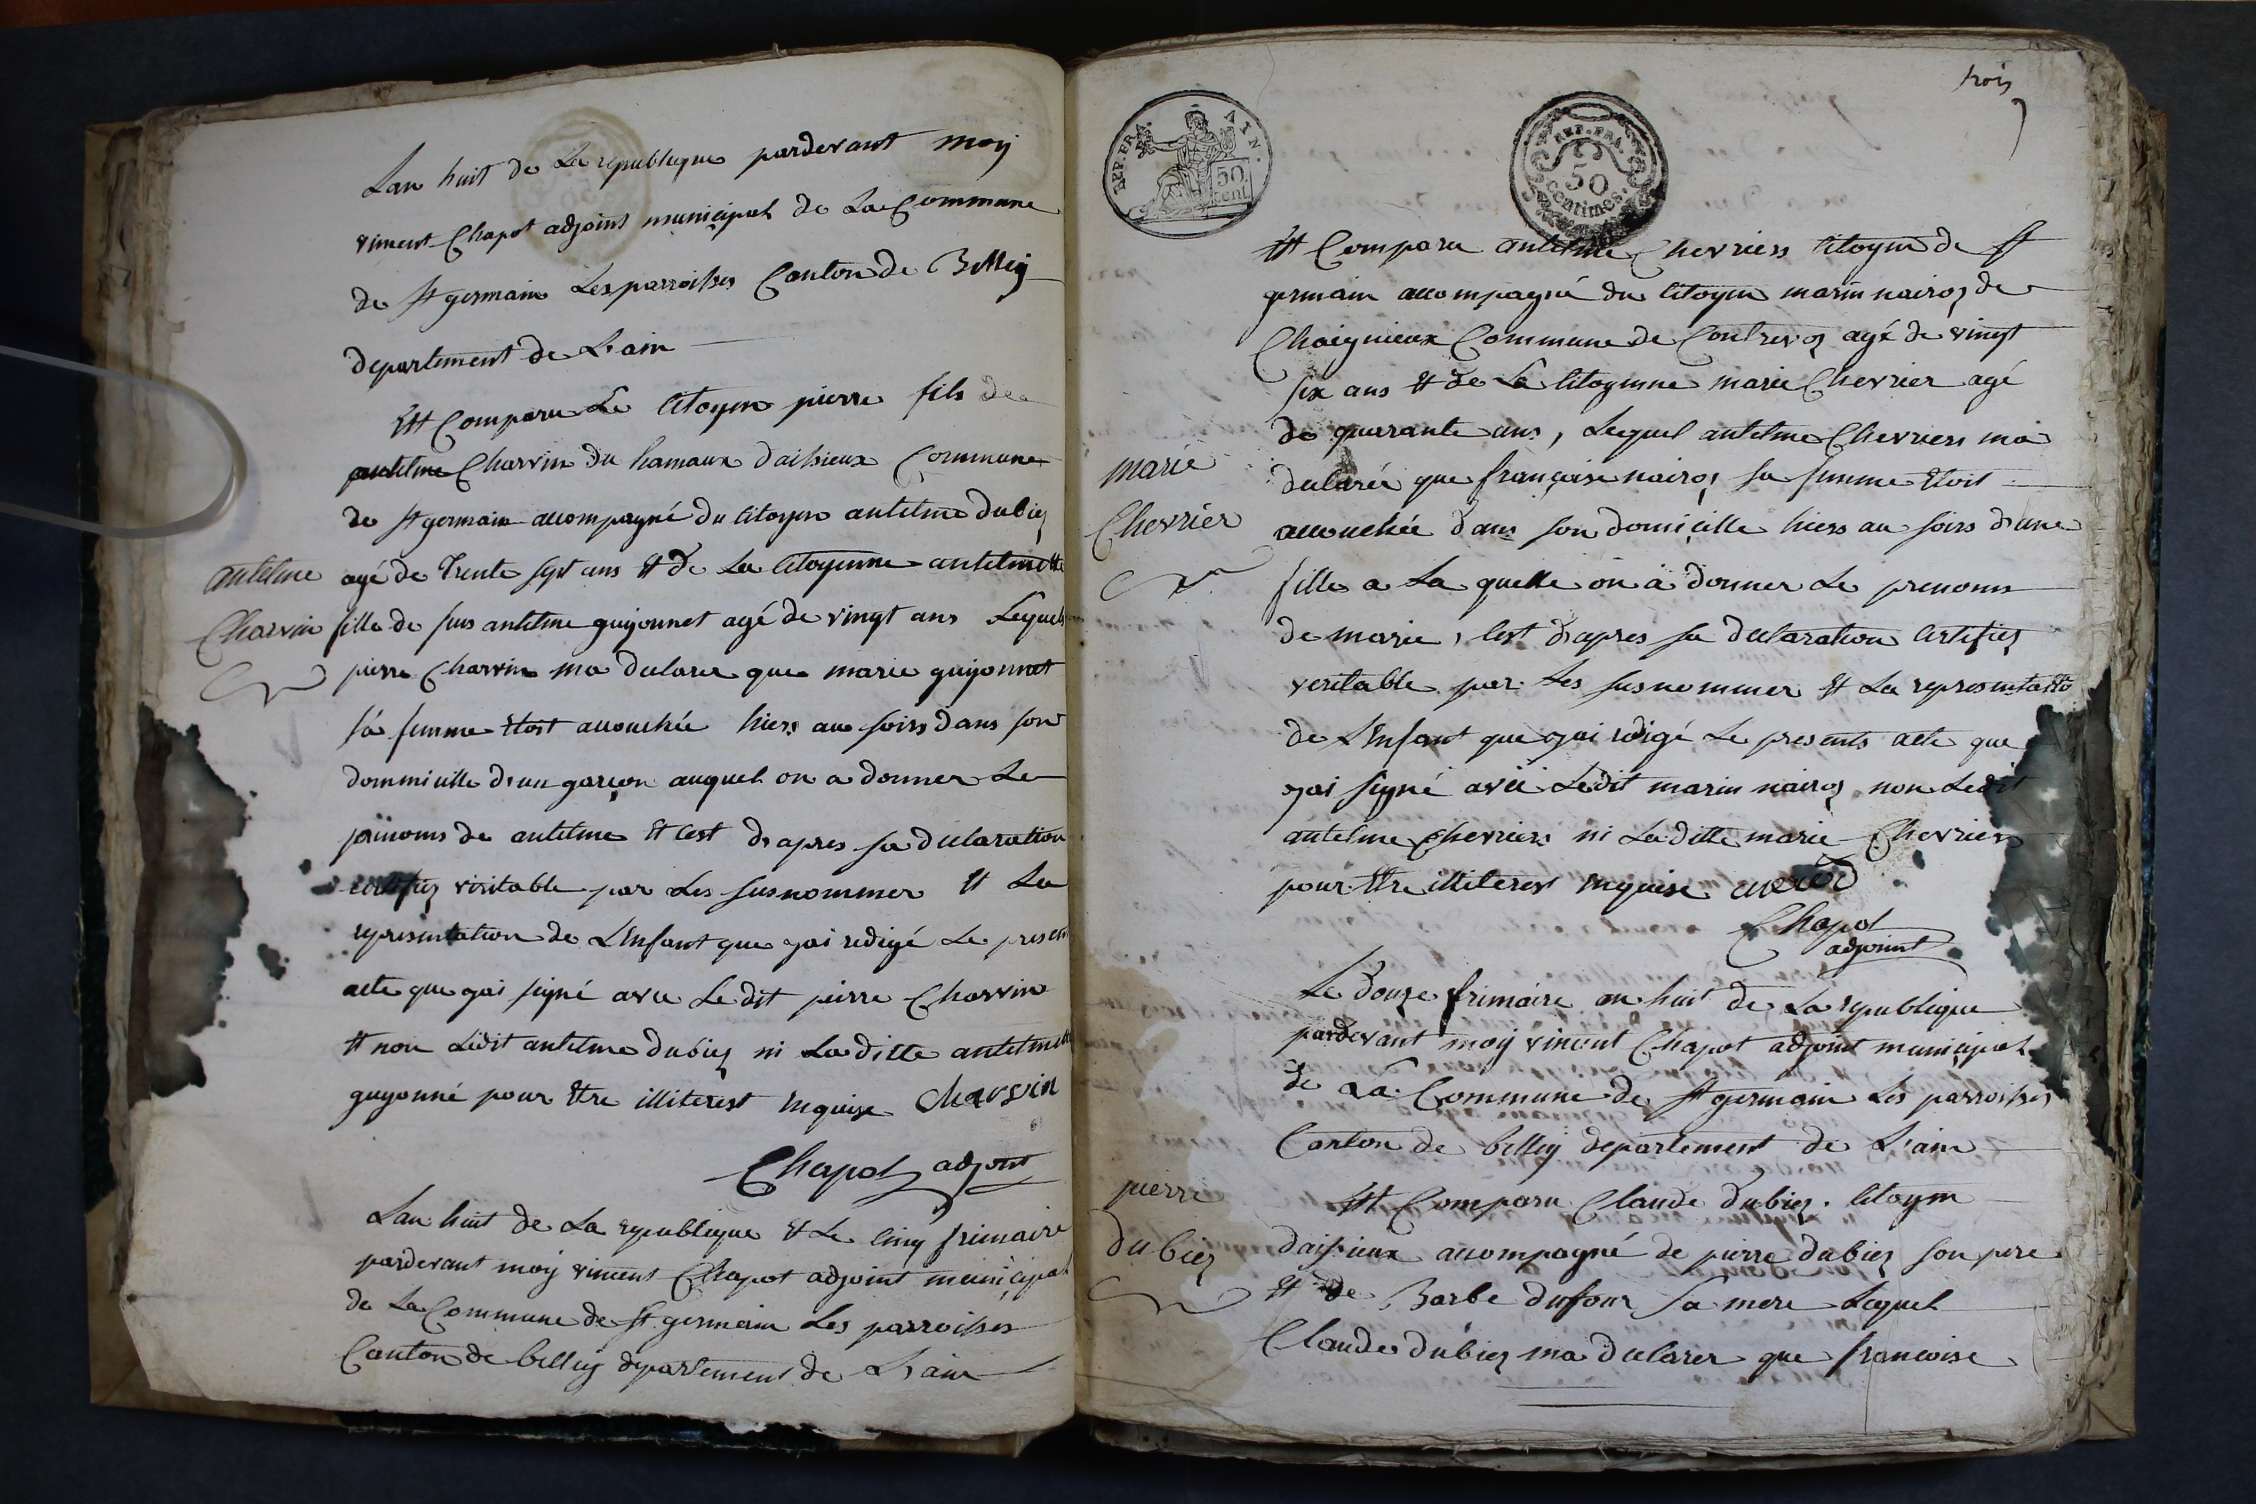 Lan huit de La republique pardevant moy
vincent Chapot adjoint municipal de La Commune
de St germain Les parroisses Canton de Belley
departement de L'ain
Est Comparu Le Citoyen pierre fils de
antelme Charvin du hamaux daissieux Commune
de St germain accompagné du Citoyen antelme dubiez
antelme
Charvin
agé de Trente sept ans et de La Citoyenne antelmette
fille de feus antelme guyonnet agé de vingt ans Lequel
pierre Charvin ma declarer que marie guyonnet
sa femme etoit accouchée hiers au soirs dans son
dommicille d'un garçon auquel on a donner Le
prénoms de antelme et cest d'apres sa declaration
certifiez veritable par Les susnommer et La
representation de L'Enfant que jai redigé Le present
acte que jai signé avec Le dit pierre Charvin
et non Ledit antelme dubiez ni La ditte antelmette
guyonné pour etre illiterest enquise Charvin
Chapot adjoint
Lan huit de La republique et Le cinq frimaire
pardevant moy vincent Chapot adjoint municipal
de La Commune de St germain Les parroisses
Canton de belley departement de L'ain
trois
REP. FRA. AIN.
50 cent.
REP. FRA.
50
centimes.
Est Comparu antelme Chevriers Citoyen de St
germain accompagné du Citoyen marin nairoz de
Choignieux Commune de Contrevoz agé de vingt
six ans et de La Citoyenne marie Chevrier agé
de quarante ans, Lequel antelme Chevriers ma
marie
Chevrier
declarée que françoise nairoz sa femme etoit
accouchée dans son domicille hiers au soirs d'une
fille a La quelle on a donner Le prenoms
de marie, cest d'apres sa declaration Certifiez
veritable par Les susnommer et La representatio
de L'Enfant que jai redigé Le presents acte que
jai signé avec Ledit marin nairoz non Ledit
antelme Chevriers ni La ditte marie Chevrier
pour etre illiterest enquise
Chapot
adjoint
Le douze frimaire an huit de La republique
pardevant moy vincent Chapot adjoint municipal
de La Commune de St germain Les parroisses
Canton de belley departement de L'ain
pierre
dubiez
Est Comparu Claude dubiez Citoyen
daissieux accompagné de pierre dubiez son pere
et de Barbe dufour sa mere Lequel
Claude dubiez ma declarer que francoise